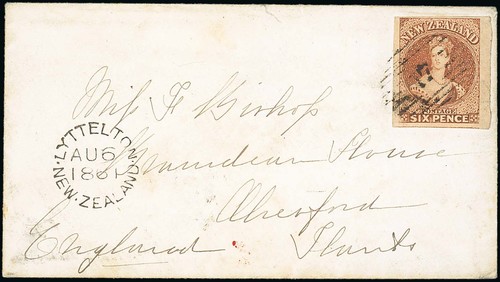 NEW ZEALAND
POSTAGE
SIX PENCE
Miss F Bishop
LYTTELTON
AU 6
1861
NEW.ZEALAND
House
Alresford
England Hants